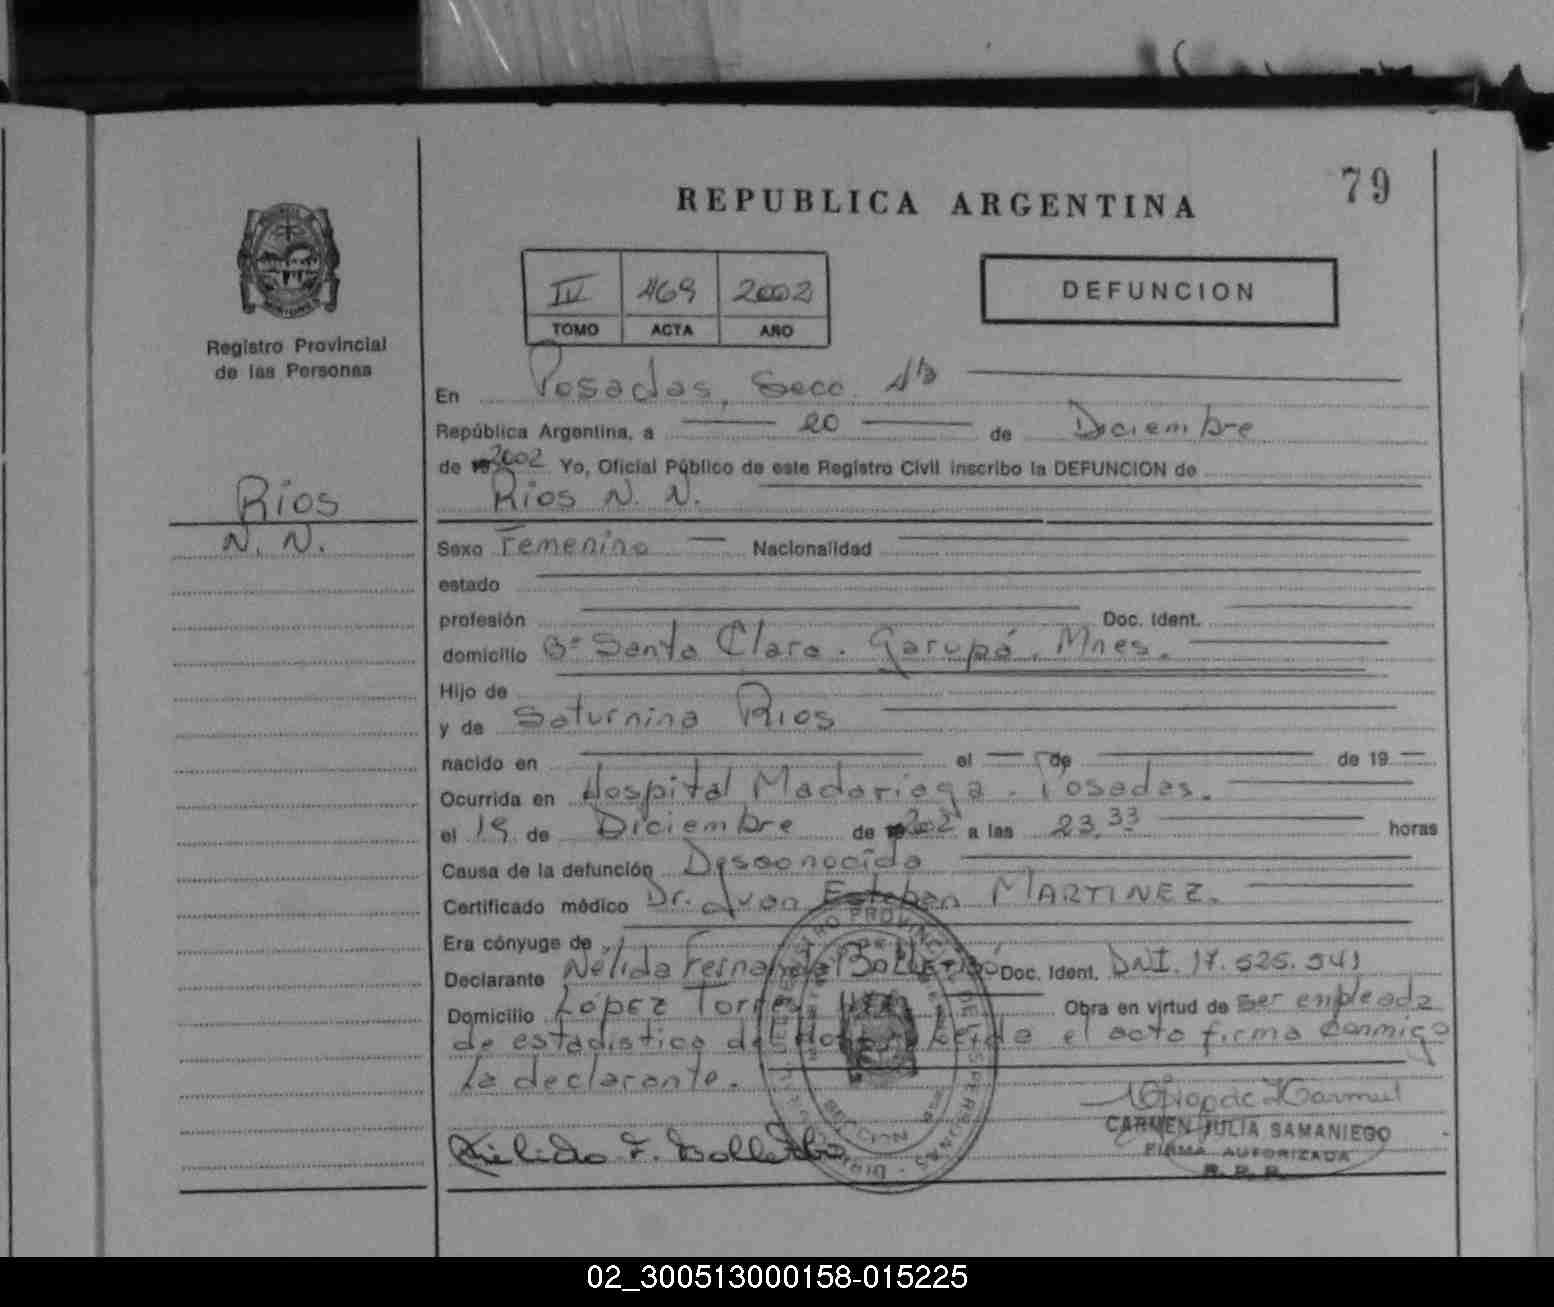 79
REPUBLICA ARGENTINA
IV 469 2002
TOMO ACTA AÑO
DEFUNCION
Registro Provincial
de las Personas
En Posadas, Secc. 1ra
República Argentina, a 20 de Diciembre
de 2002 Yo, Oficial Público de este Registro Civil inscribo la DEFUNCION de
Rios N. N.
Rios
N. N.
Sexo Femenino Nacionalidad
estado
profesión Doc. Ident.
domicilio Bº Santa Clara. Garupá. Mnes.
Hijo de
y de Saturnina Rios
nacido en el de de 19
Ocurrida en Hospital Madariaga. Posadas.
el 19 de Diciembre de 2002 a las 23,33 horas
Causa de la defunción Desconocida
Certificado médico Dr. Juan Esteban MARTINEZ.
Era cónyuge de
Declarante Nélida Fernanda Doc. Ident. DNI. 17.525.541
Domicilio López Torres Obra en virtud de ser empleada
de estadistica del Leida el acta firma conmigo
la declarante.
CARMEN JULIA SAMANIEGO
FIRMA AUTORIZADA
R. P. P.
SECCION
02_300513000158-015225